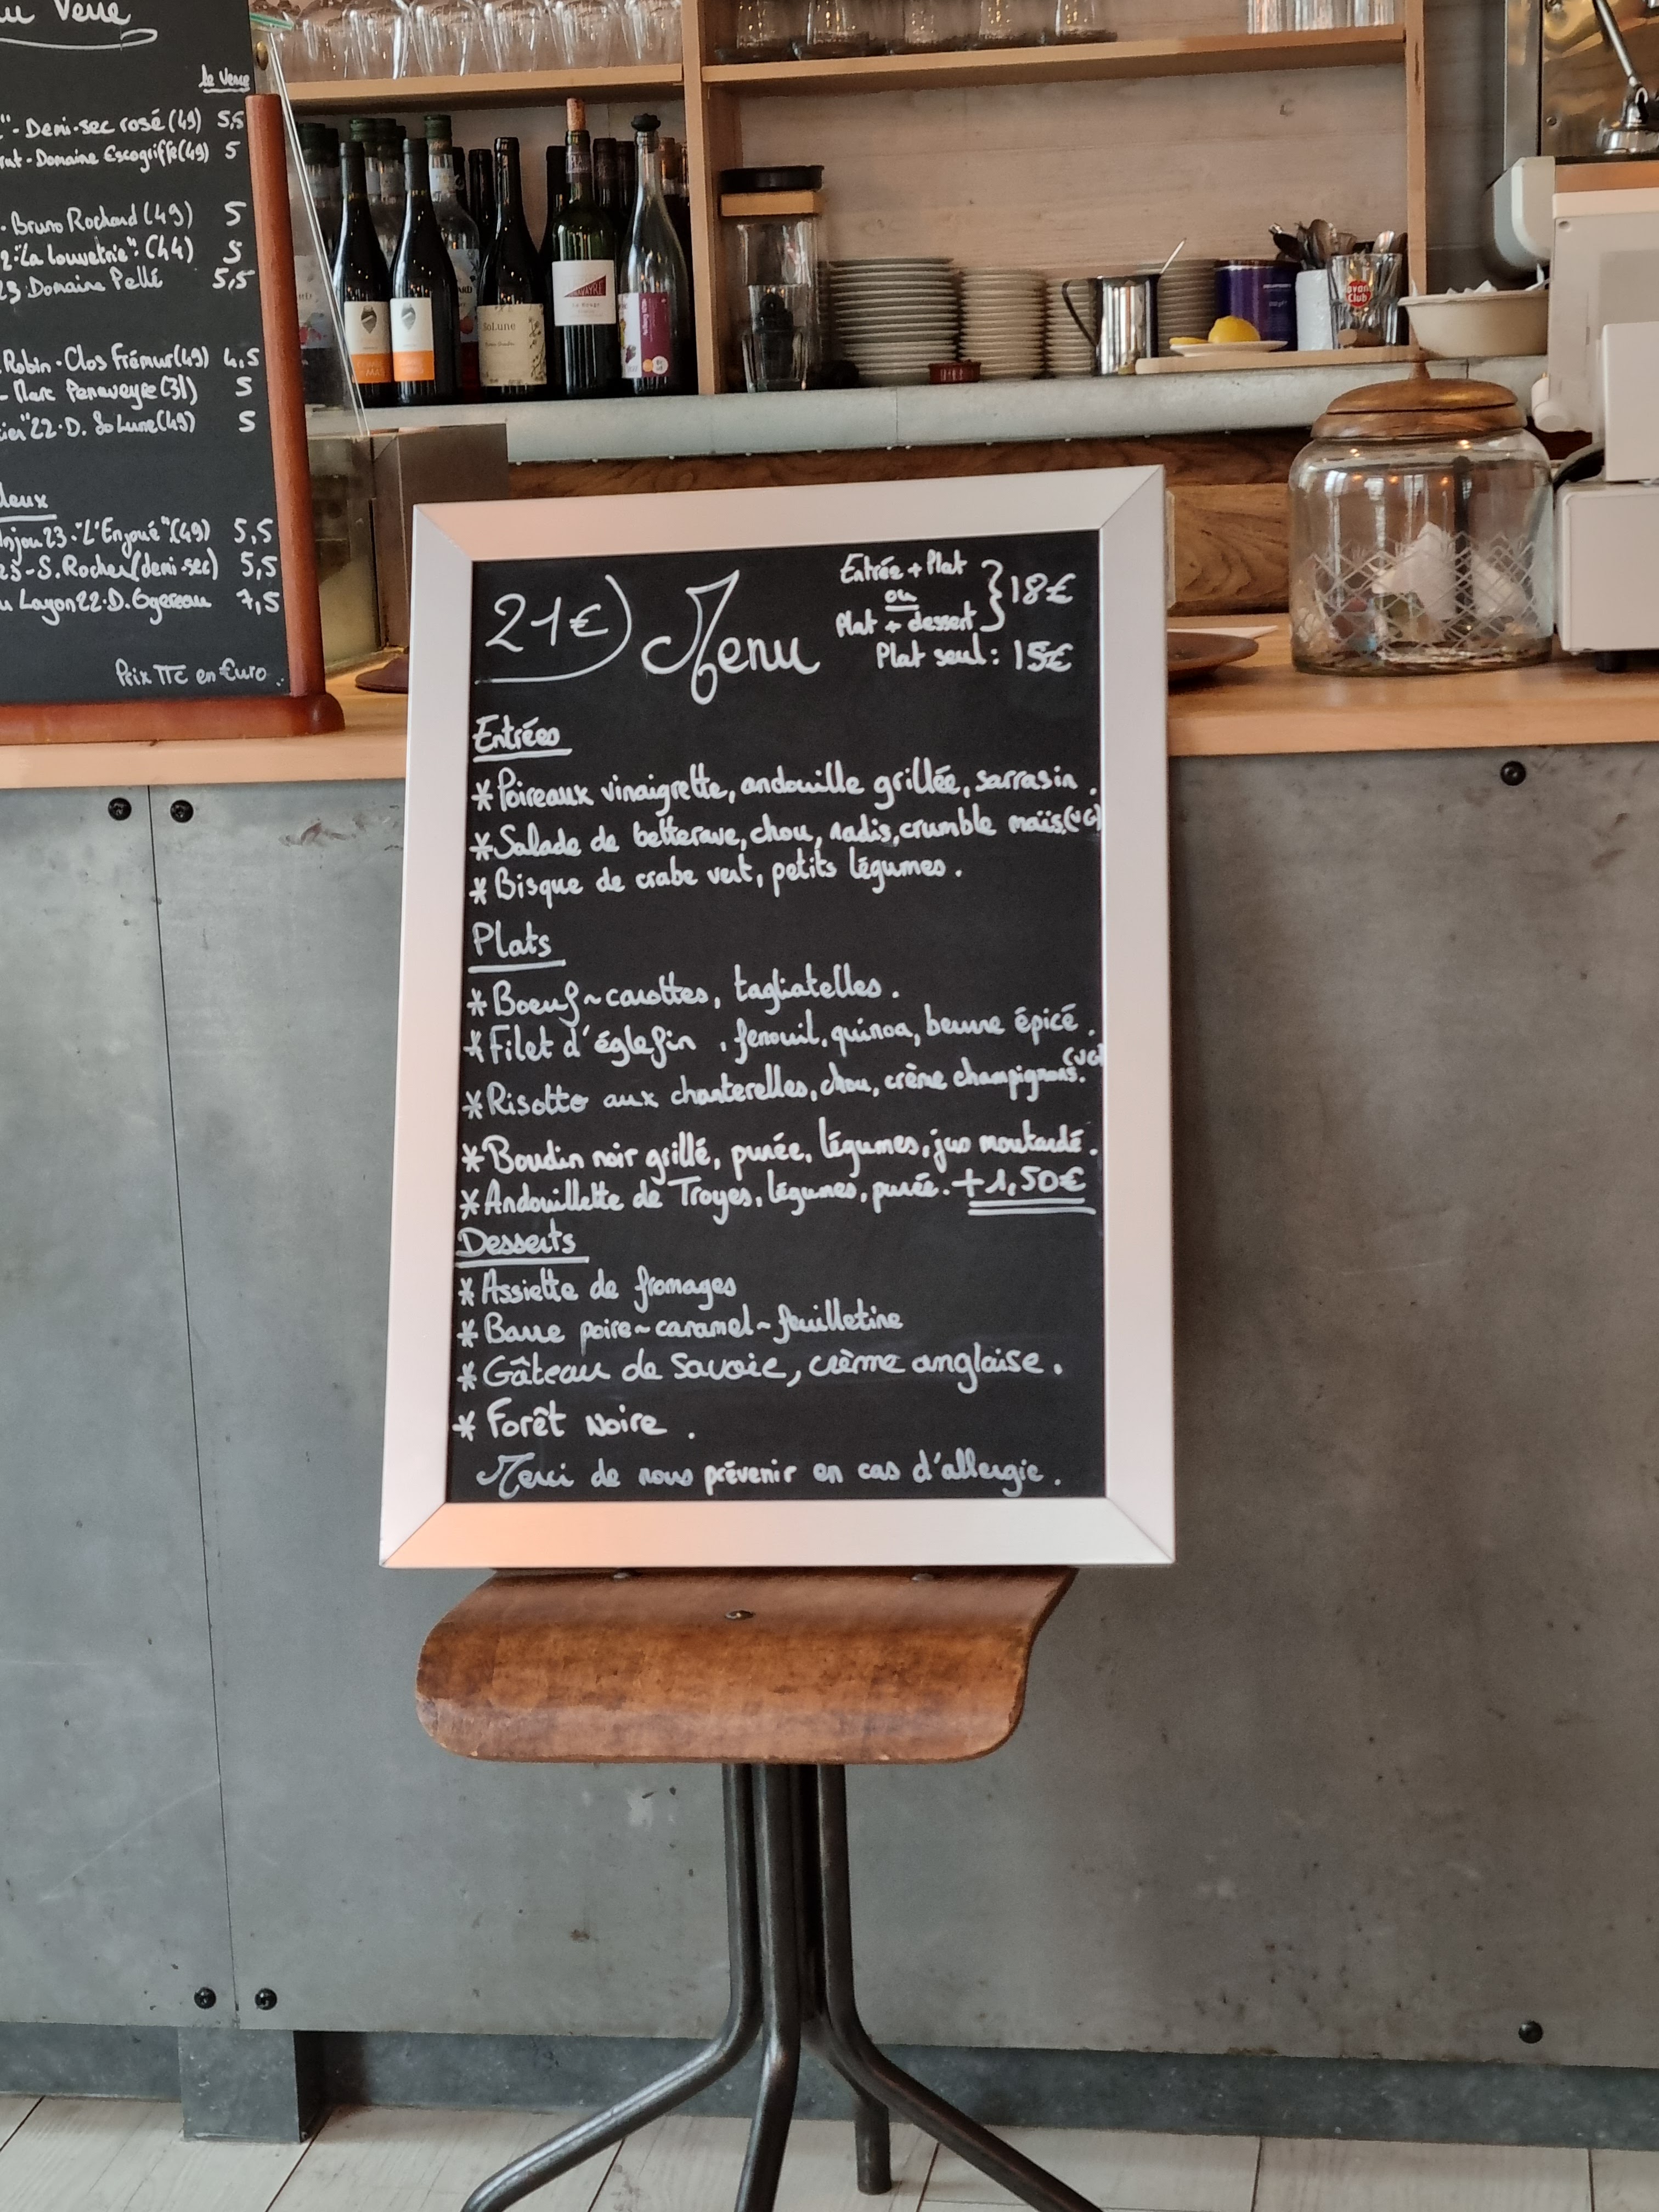 au Verre
le verre
Demi-sec rosé (49) 5,5
Domaine Escogriffe (49) 5
Bruno Rochard (49) 5
"La Louvetrie" (44) 5
23 Domaine Pellé 5,5
Robin - Clos Frémur (49) 4,5
Marc Penavayre (31) 5
22 - D. SoLune (49) 5
Anjou 23 - "L'Enjoué" (49) 5,5
23 - S. Rocher (demi-sec) 5,5
Layon 22 - D. Ogereau 7,5
Prix TTC en €uro
SoLune
21€
Menu
Entrée + Plat
ou
Plat + dessert
} 18€
Plat seul : 15€
Entrées
* Poireaux vinaigrette, andouille grillée, sarrasin.
* Salade de betterave, chou, radis, crumble maïs. (VG)
* Bisque de crabe vert, petits légumes.
Plats
* Boeuf ~ carottes, tagliatelles.
* Filet d'églefin, fenouil, quinoa, beurre épicé.
* Risotto aux chanterelles, chou, crème champignons. (VG)
* Boudin noir grillé, purée, légumes, jus moutardé.
* Andouillette de Troyes, légumes, purée. +1,50€
Desserts
* Assiette de fromages
* Barre poire ~ caramel ~ feuilletine
* Gâteau de Savoie, crème anglaise.
* Forêt Noire.
Merci de nous prévenir en cas d'allergie.